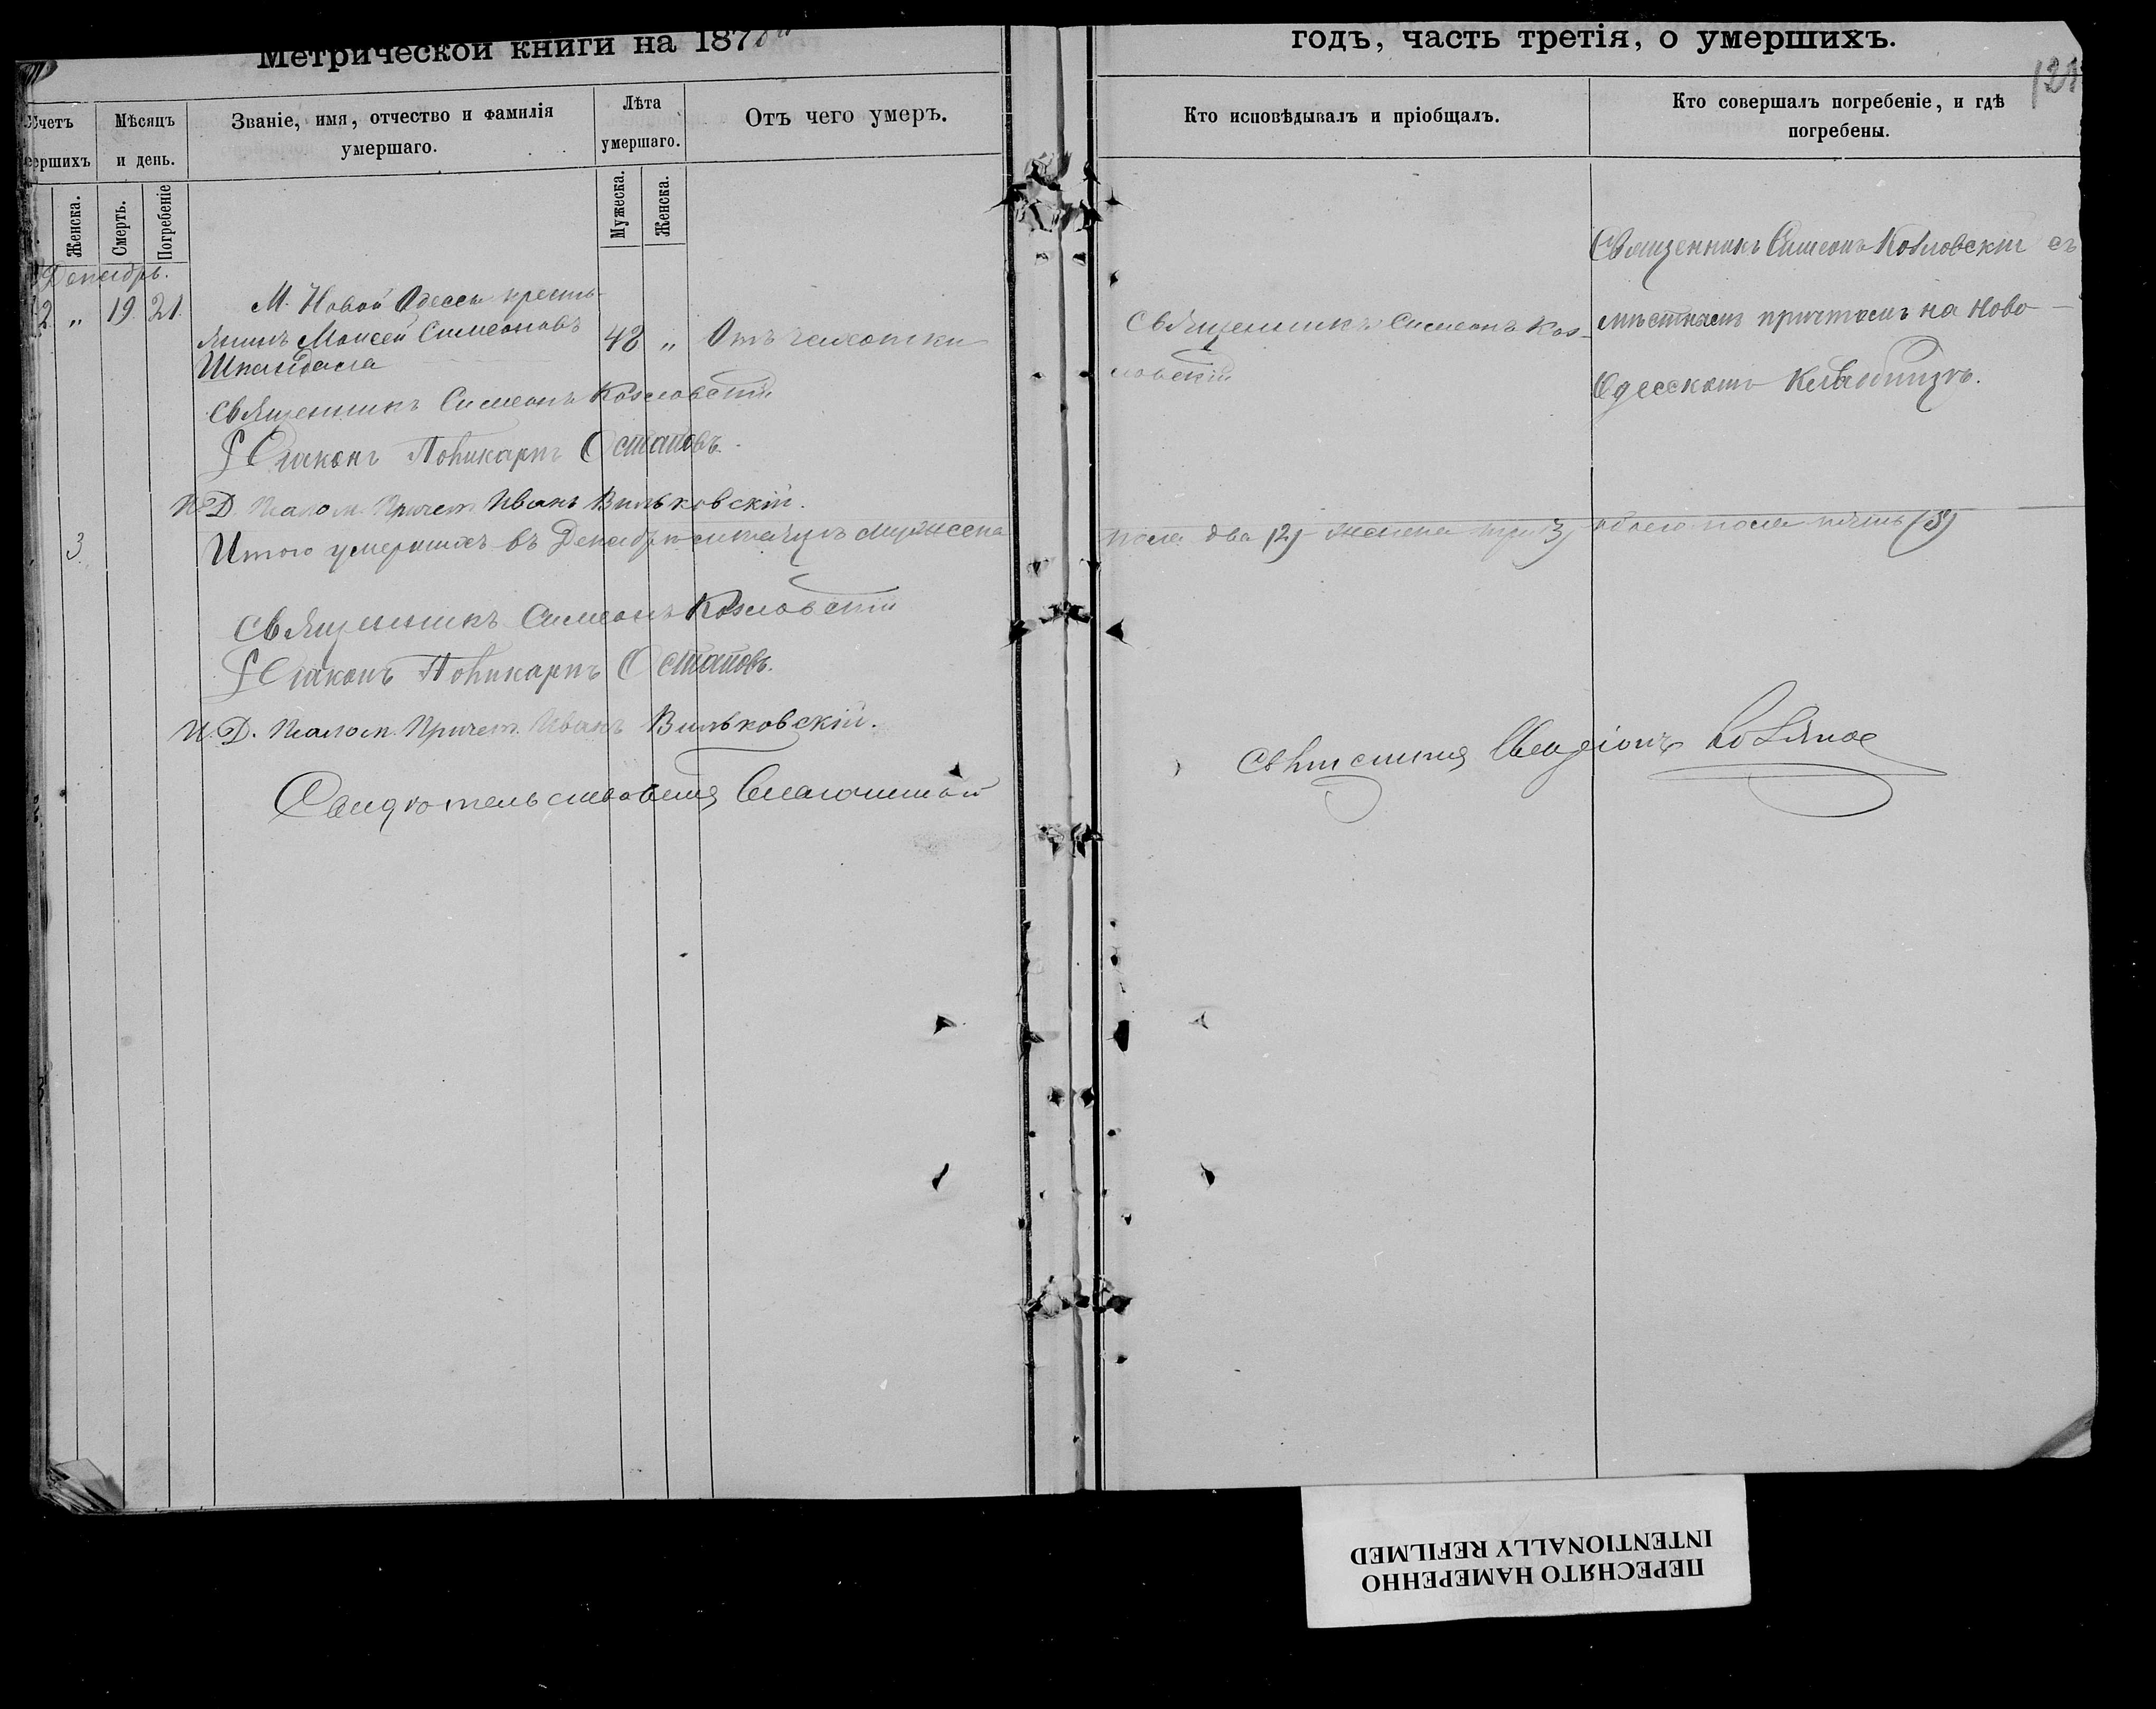 Метрической книги на 187
годъ, часть третія, о умершихъ.
121
Счетъ
умершихъ
Мѣсяцъ
и день.
Званіе, имя, отчество и фамилія
умершаго.
Лѣта
умершаго.
Отъ чего умеръ.
Кто исповѣдывалъ и пріобщалъ.
Кто совершалъ погребеніе, и гдѣ
погребены.
Женска.
Смерть.
Погребеніе
Мужеска.
Женска.
Декабрь.
2 „ 19. 21.
М. Новой Одессы кресть-
янинъ Моисей Симеоновъ
48 „ Отъ чахотки
Священникъ Симеонъ Коз-
ловскій
Священникъ Симеонъ Козловскій съ
мѣстнымъ причтомъ на Ново-
Одесскомъ Кладбищѣ.
Священникъ Симеонъ Козловскій
Діаконъ Поликарпъ Остаповъ.
И. Д. Псалом. Причет. Иванъ Вильковскій.
3. Итого умершихъ въ Декабрѣ мѣсяцѣ мужеска
пола два (2) женска три (3) обоего пола пять (5)
Священникъ Симеонъ Козловскій
Діаконъ Поликарпъ Остаповъ.
И. Д. Псалом. Причет. Иванъ Вильковскій.
Свидѣтельствовалъ Благочинный
Священникъ
ПЕРЕСНЯТО НАМЕРЕННО
INTENTIONALLY REFILMED